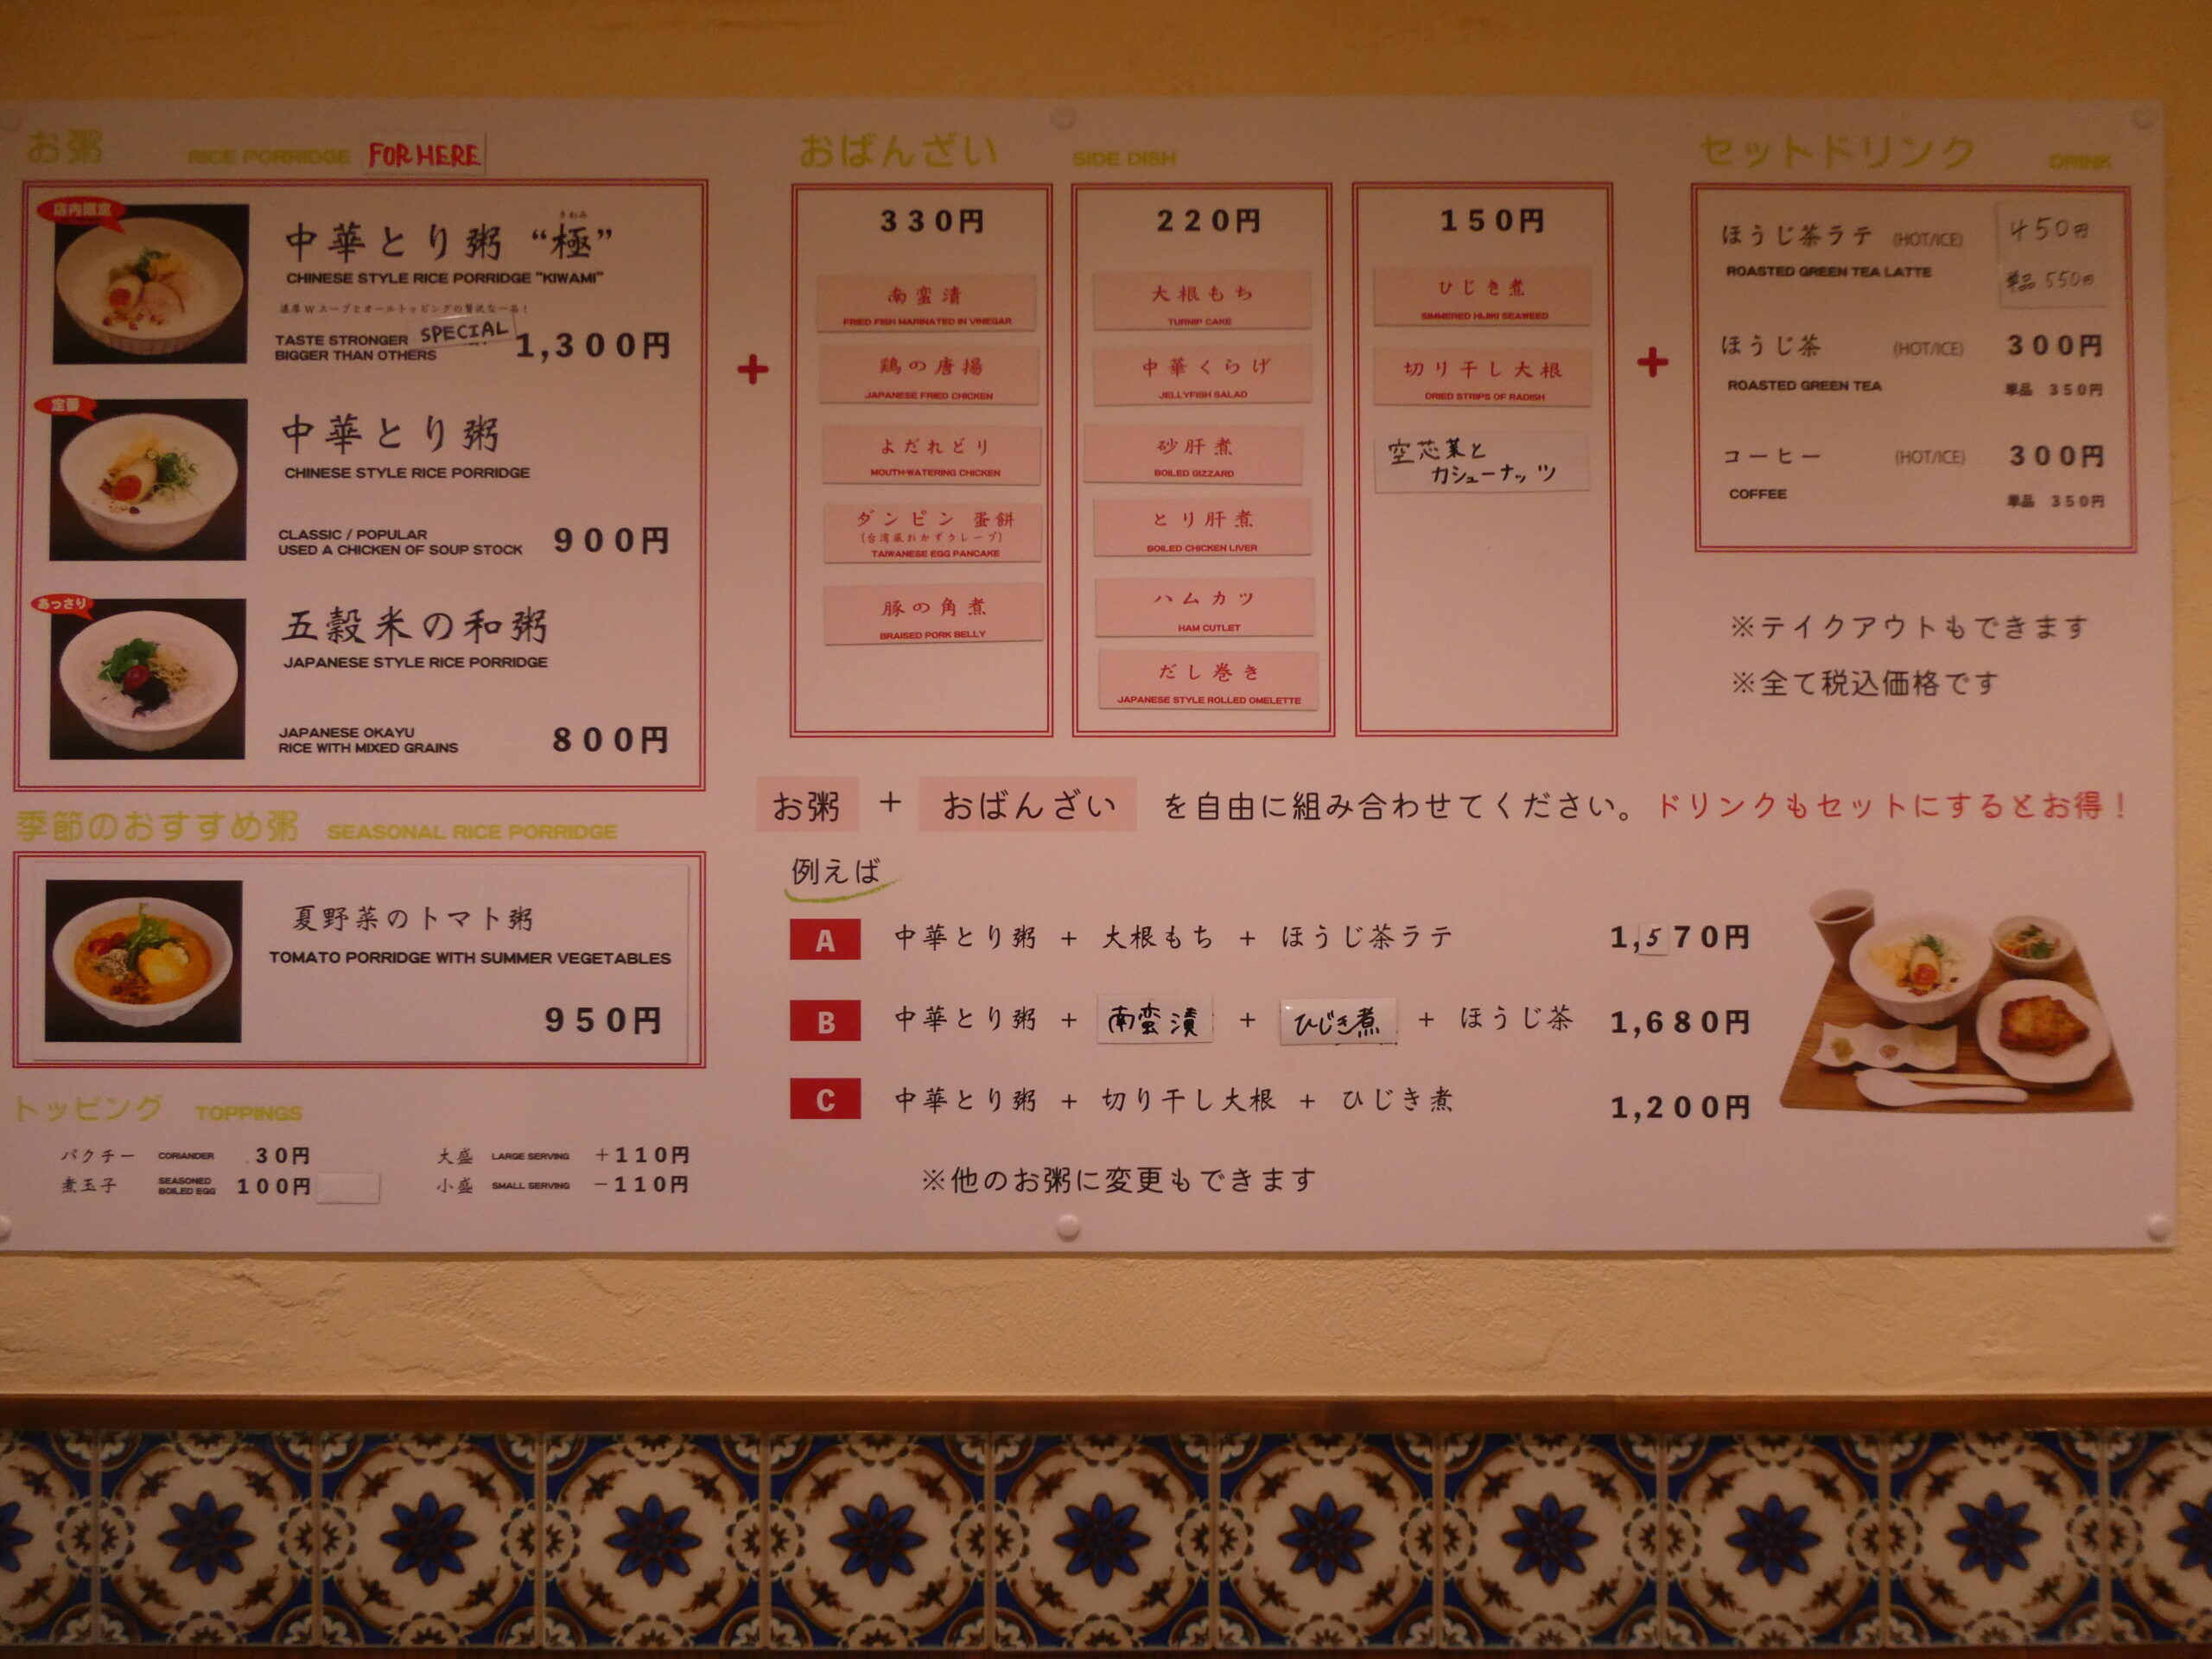 お粥 RICE PORRIDGE FOR HERE
店内限定
きわみ
中華とり粥 “極”
CHINESE STYLE RICE PORRIDGE “KIWAMI”
濃厚Wスープとオールトッピングの贅沢な一品！
TASTE STRONGER SPECIAL
BIGGER THAN OTHERS 1,300円
定番
中華とり粥
CHINESE STYLE RICE PORRIDGE
CLASSIC / POPULAR
USED A CHICKEN OF SOUP STOCK 900円
あっさり
五穀米の和粥
JAPANESE STYLE RICE PORRIDGE
JAPANESE OKAYU
RICE WITH MIXED GRAINS 800円
季節のおすすめ粥 SEASONAL RICE PORRIDGE
夏野菜のトマト粥
TOMATO PORRIDGE WITH SUMMER VEGETABLES
950円
トッピング TOPPINGS
パクチー CORIANDER 30円
煮玉子 SEASONED BOILED EGG 100円
大盛 LARGE SERVING +110円
小盛 SMALL SERVING -110円
+
おばんざい SIDE DISH
330円
南蛮漬
FRIED FISH MARINATED IN VINEGAR
鶏の唐揚
JAPANESE FRIED CHICKEN
よだれどり
MOUTH-WATERING CHICKEN
ダンピン 蛋餅
(台湾風おかずクレープ)
TAIWANESE EGG PANCAKE
豚の角煮
BRAISED PORK BELLY
220円
大根もち
TURNIP CAKE
中華くらげ
JELLYFISH SALAD
砂肝煮
BOILED GIZZARD
とり肝煮
BOILED CHICKEN LIVER
ハムカツ
HAM CUTLET
だし巻き
JAPANESE STYLE ROLLED OMELETTE
150円
ひじき煮
SIMMERED HIJIKI SEAWEED
切り干し大根
DRIED STRIPS OF RADISH
空芯菜と
カシューナッツ
+
セットドリンク DRINK
ほうじ茶ラテ (HOT/ICE) 450円
ROASTED GREEN TEA LATTE 単品 550円
ほうじ茶 (HOT/ICE) 300円
ROASTED GREEN TEA 単品 350円
コーヒー (HOT/ICE) 300円
COFFEE 単品 350円
※テイクアウトもできます
※全て税込価格です
お粥 + おばんざい を自由に組み合わせてください。ドリンクもセットにするとお得！
例えば
A 中華とり粥 + 大根もち + ほうじ茶ラテ 1,570円
B 中華とり粥 + 南蛮漬 + ひじき煮 + ほうじ茶 1,680円
C 中華とり粥 + 切り干し大根 + ひじき煮 1,200円
※他のお粥に変更もできます